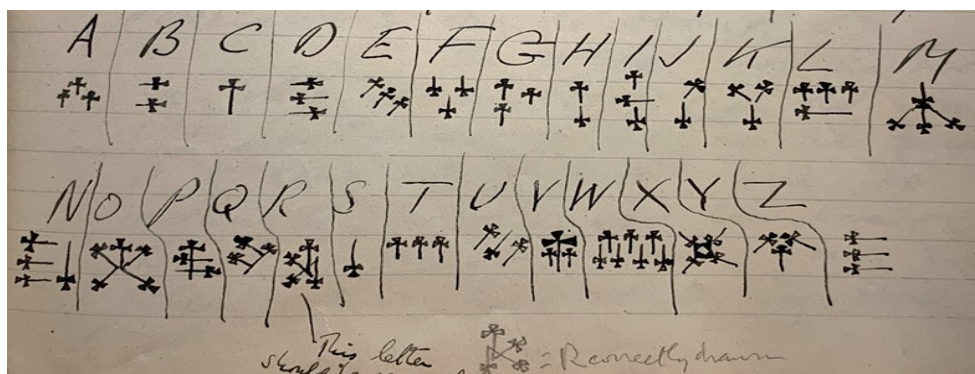 A B C D E F G H I J K L M
N O P Q R S T U V W X Y Z
This letter
= R correctly drawn